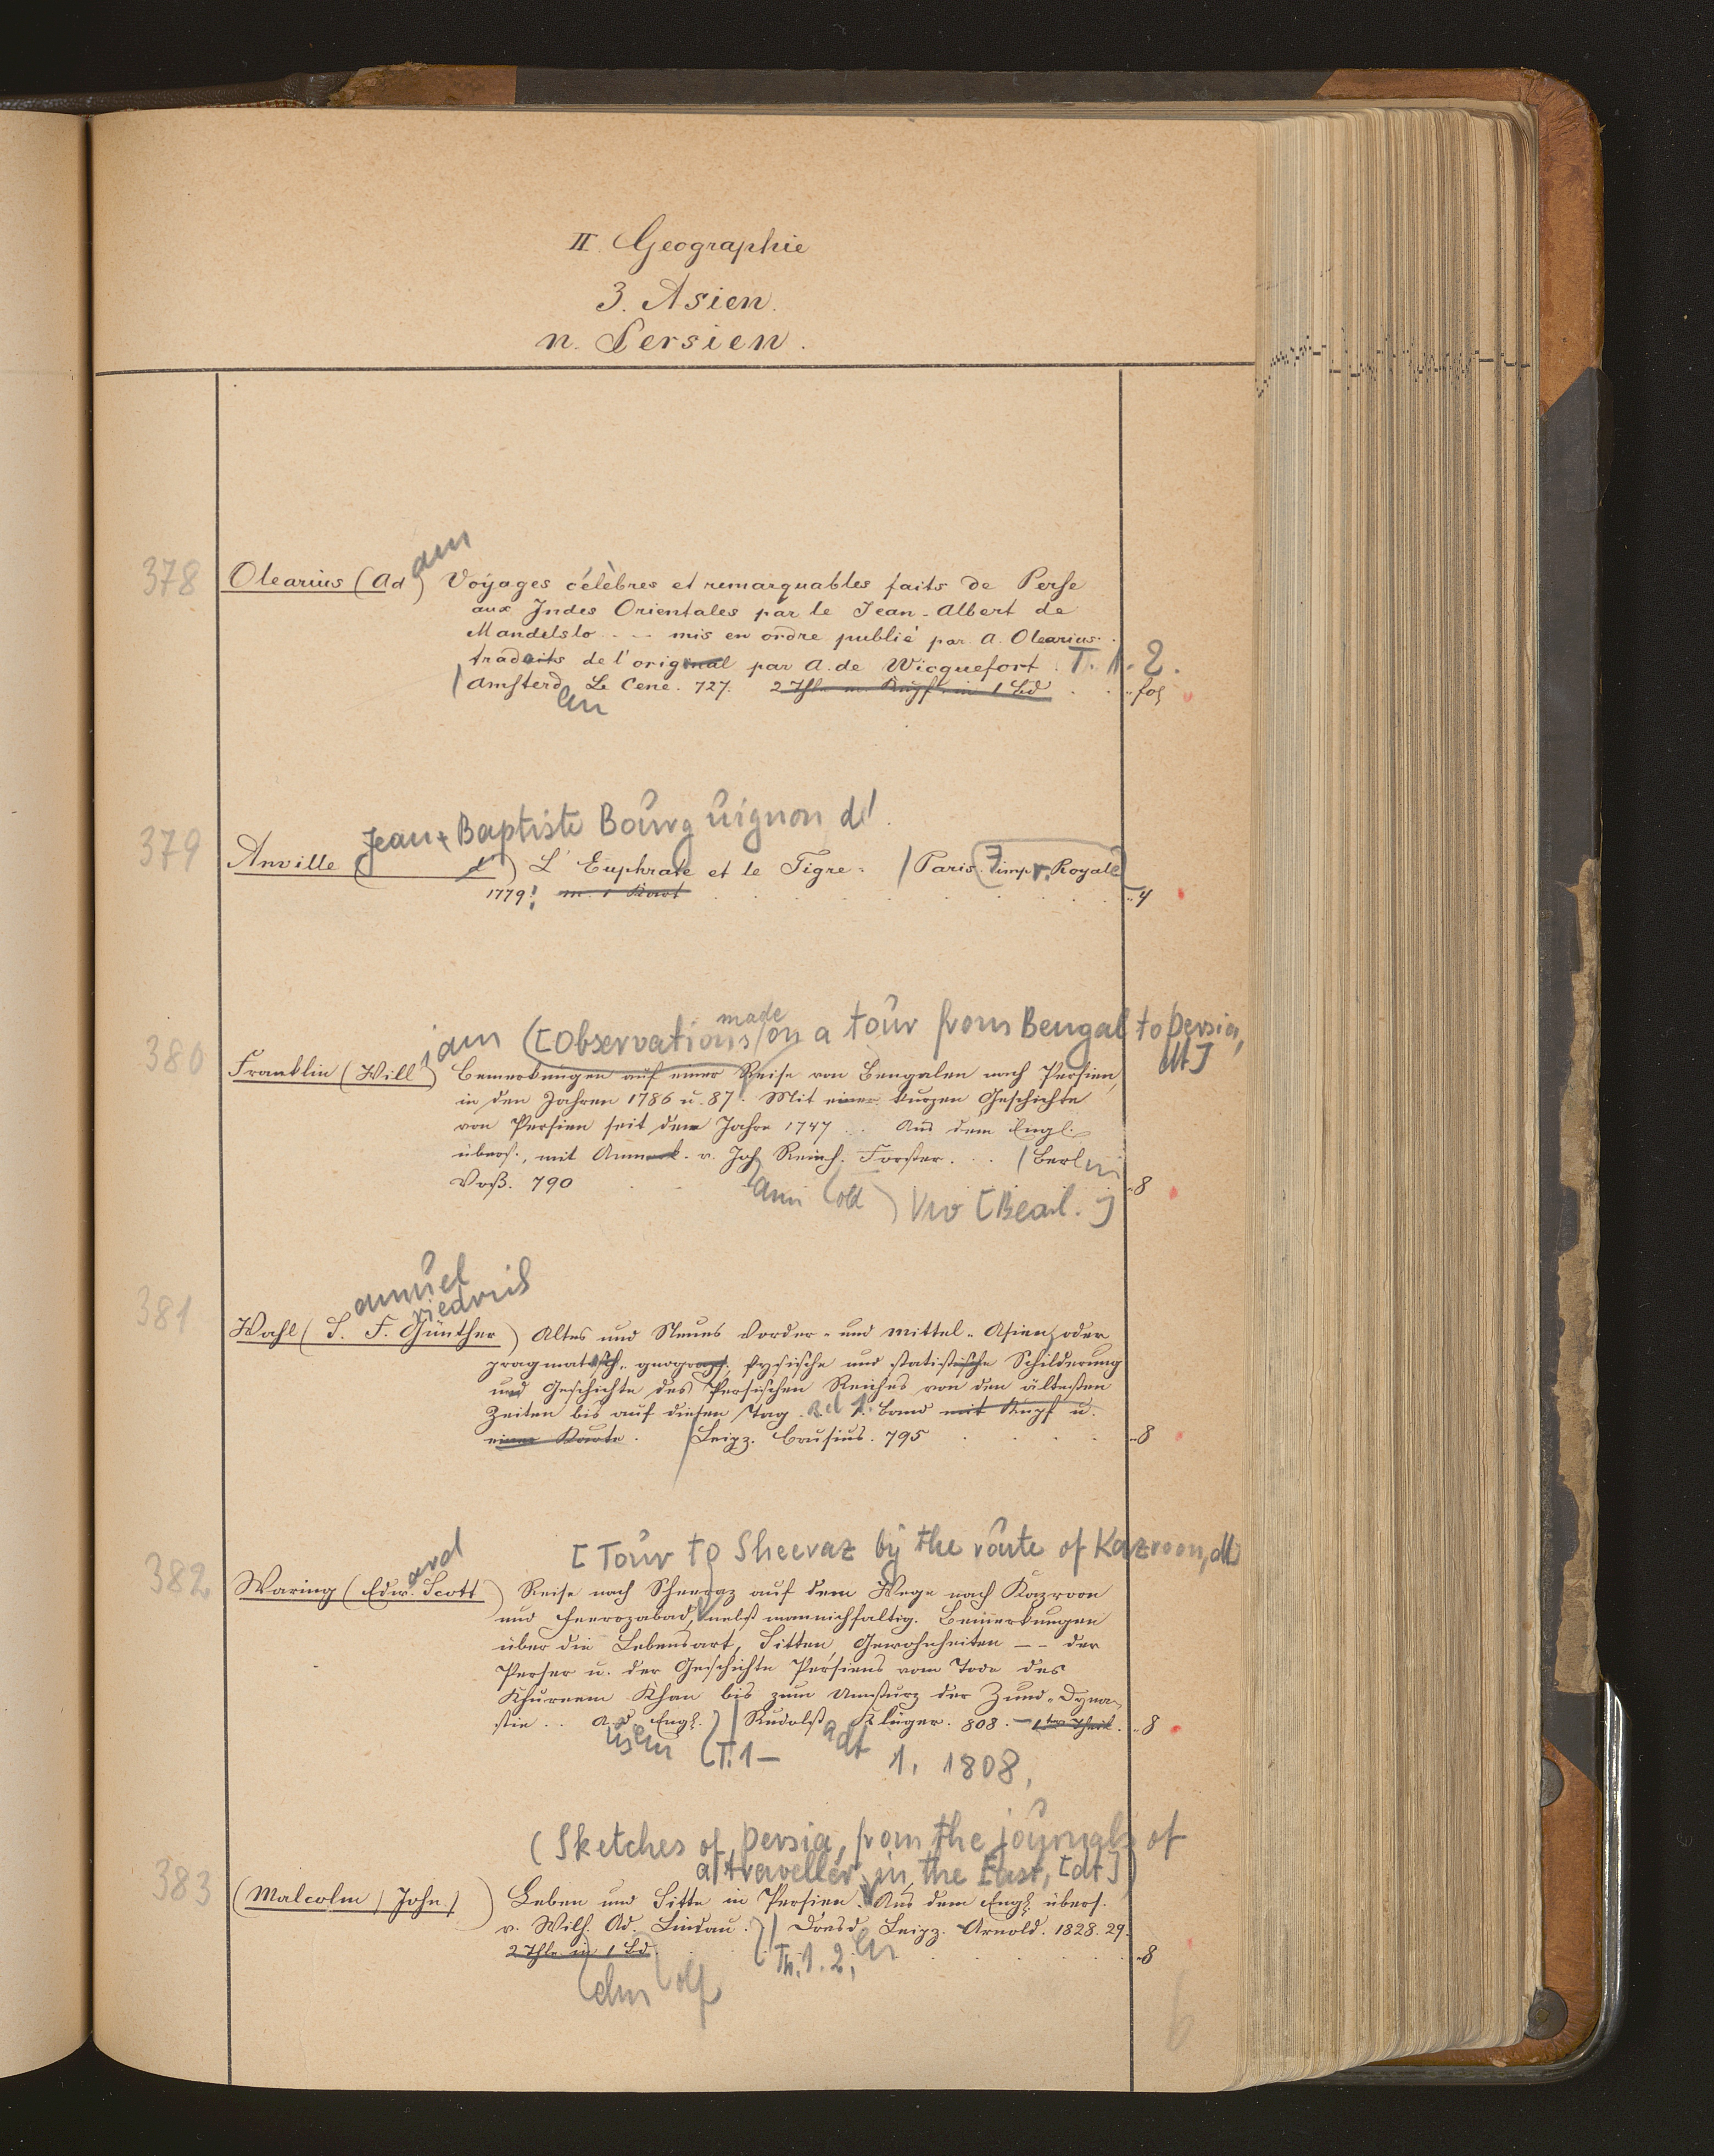 II. Geographie
3. Asien.
n. Persien.
am
378 Olearius (Ad) Voyages célèbres et remarquables faits de Perse
aux Indes Orientales par le Jean-Albert de
Mandelslo - - - mis en ordre publié par A. Olearius.
traduits de l'original par A. de Wicquefort. T. 1. 2.
/ Amsterd. Le Cene. 727. 2 Thle m. Kupf. in 1 Bd . . . fol
am
Jean-Baptiste Bourguignon d'
379 Anville ( d') L'Euphrate et le Tigre. / Paris. impr. Royale
1779. m. 1 Kart . . . 4
iam ([Observations made on a tour from Bengal to Persia,
dt]
380 Franklin (Will) Bemerkungen auf einer Reise von Bengalen nach Persien,
in den Jahren 1786 u. 87. Mit einer kurzen Geschichte
von Persien seit dem Jahre 1747 . . Aus dem Engl.
übers., mit Anmerk. v. Joh. Reinh. Forster. . . / Berlin
Voß. 790 8
ann (old)
amuel
riedrich
381 Wahl (S. F. Günther) Altes und Neues Vorder- und Mittel-Asien, oder
pragmatisch-geograph., fysische und statistische Schilderung
und Geschichte des Persischen Reiches von den ältesten
Zeiten bis auf diesen Tag. Bd 1. Band mit Kupf u.
einer Karte. / Leipz. Crusius. 795 . . . 8
[Tour to Sheeraz by the route of Kazroon, dt]
ard
382 Waring (Edw. Scott) Reise nach Scheeraz auf dem Wege nach Kazroon
und Feerozabad, nebst mannichfaltig. Bemerkungen
über die Lebensart, Sitten, Gewohnheiten - - der
Perser u. der Geschichte Persiens vom Tode des
Khureem Khan bis zum Umsturz der Zund-Dyna-
stie . . A. d. Engl. ) / Rudolst. Klüger. 808. - 1ter Theil. 8
us em (T. 1 - adt 1. 1808.
(Sketches of Persia, from the journals of
a traveller in the East, [dt])
383 (Malcolm, John) Leben und Sitte in Persien. Aus dem Engl. übers.
v. Wilh. Ad. Lindau. ) / Dresd. Leipz. Arnold. 1828. 29.
2 Thle in 1 Bd. . . . 8
Th. 1. 2. en
elm olf
6